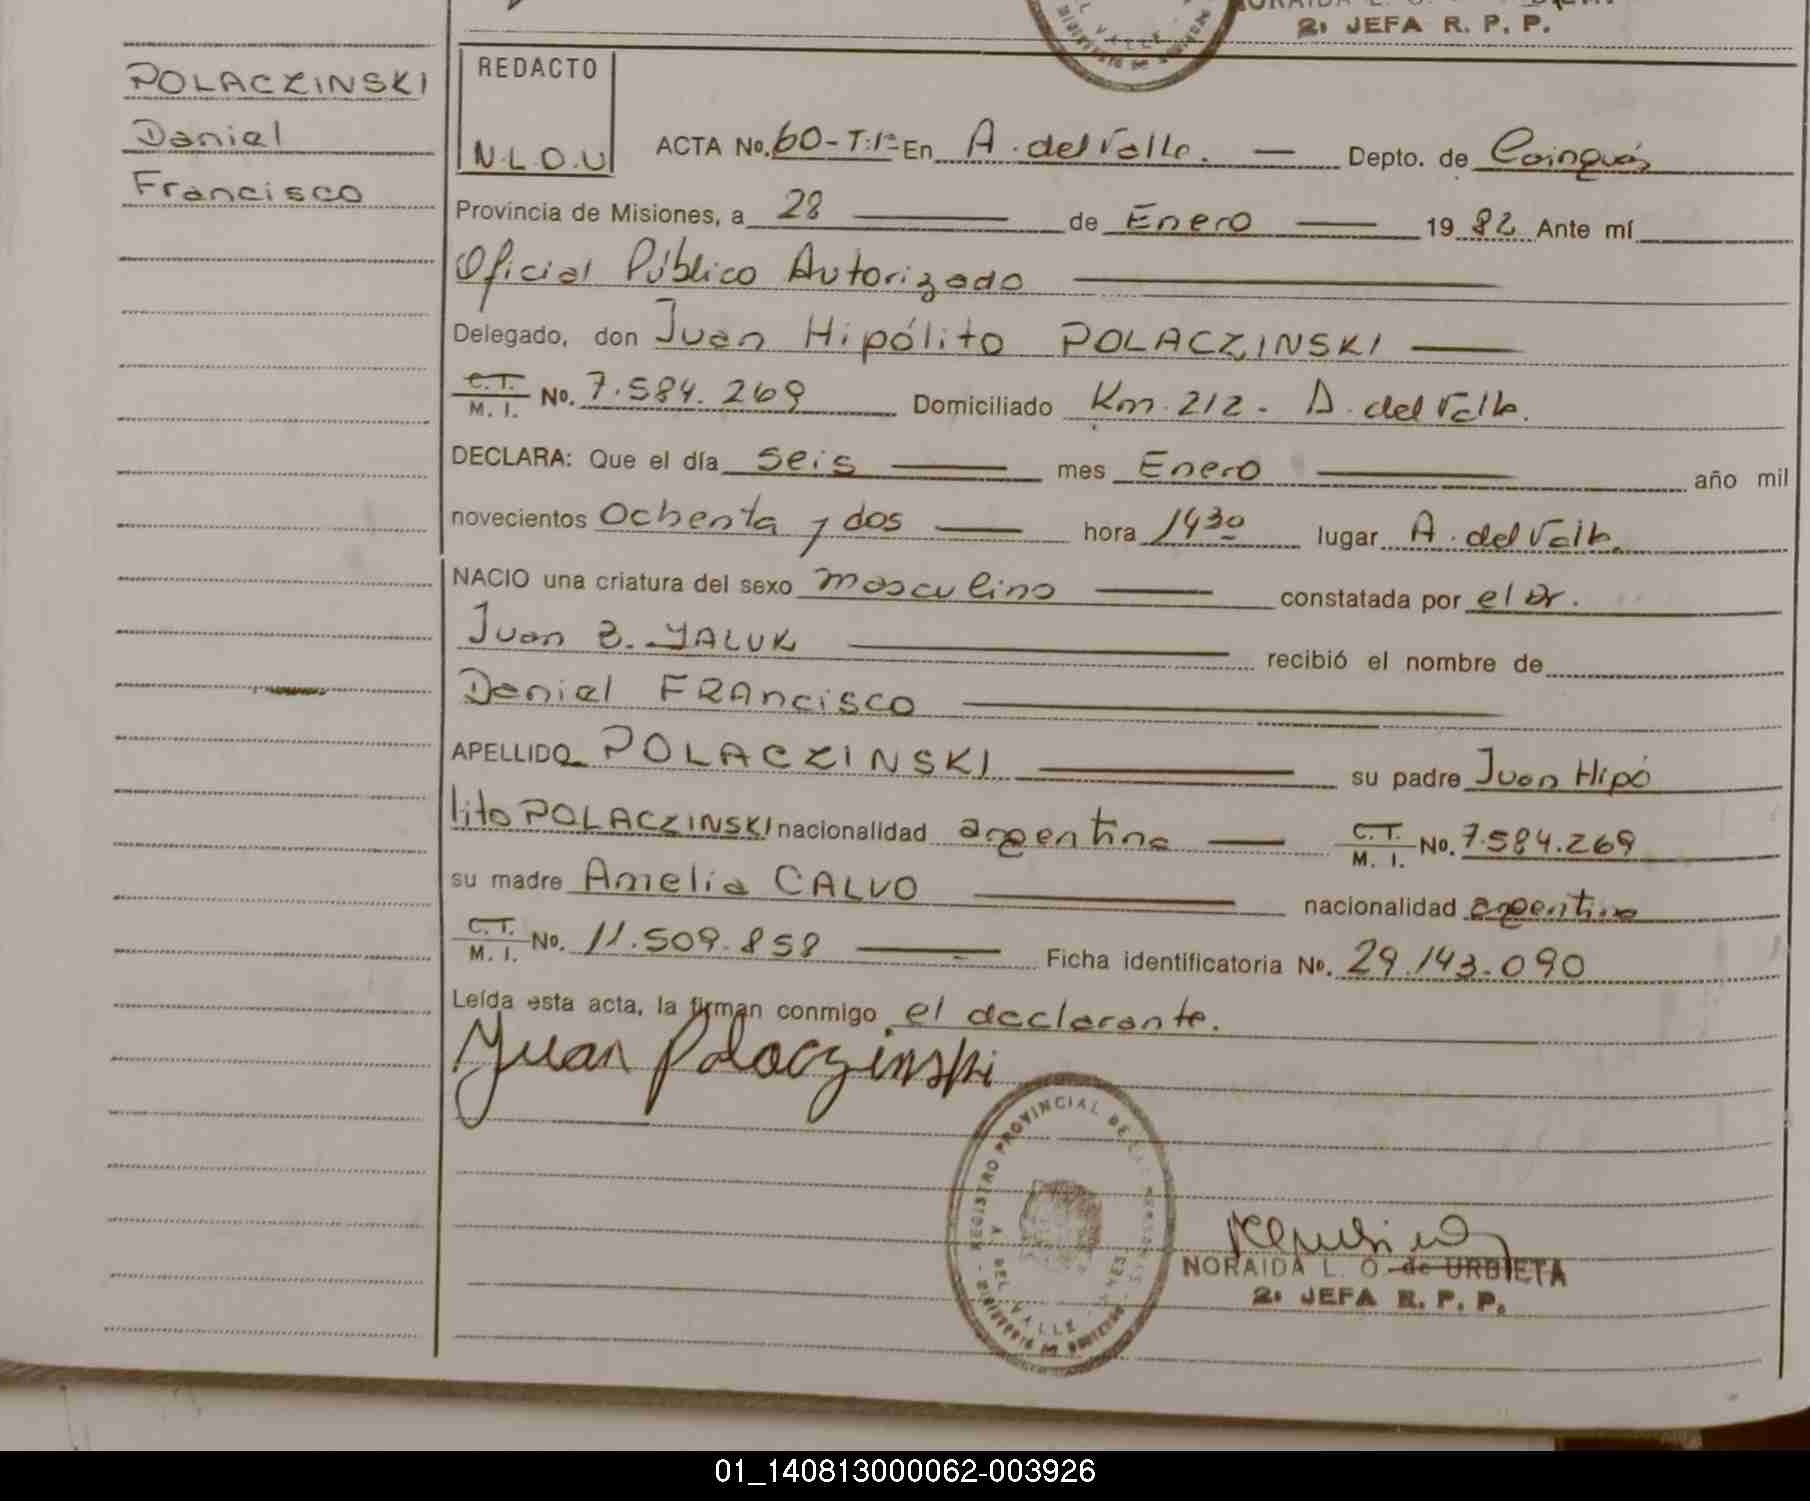 2ª JEFA R. P. P.
POLACZINSKI
Daniel
Francisco
REDACTO
N.L.O.U
ACTA No. 60-T:1º En A. del Valle. — Depto. de Cainguás
Provincia de Misiones, a 28 — de Enero — 19 82 Ante mí
Oficial Público Autorizado
Delegado, don Juan Hipólito POLACZINSKI
C.T. M. I. No. 7.584.269 Domiciliado Km. 212- A. del Valle.
DECLARA: Que el día seis — mes Enero — año mil
novecientos Ochenta y dos — hora 1430 lugar A. del Valle.
NACIO una criatura del sexo masculino — constatada por el Dr.
Juan B. YALUK — recibió el nombre de
Daniel FRAncisco
APELLIDO POLACZINSKI — su padre Juan Hipó
lito POLACZINSKI nacionalidad argentina — C.T. M. I. No. 7.584.269
su madre Amelia CALVO — nacionalidad argentina
C.T. M. I. No. 11.509.858 — Ficha identificatoria No. 29.143.090
Leída esta acta, la firman conmigo el declarante.
Juan Polaczinski
REGISTRO PROVINCIAL DE LAS PERSONAS
A. DEL VALLE
NORAIDA L. O. de URBIETA
2ª JEFA R. P. P.
01_140813000062-003926